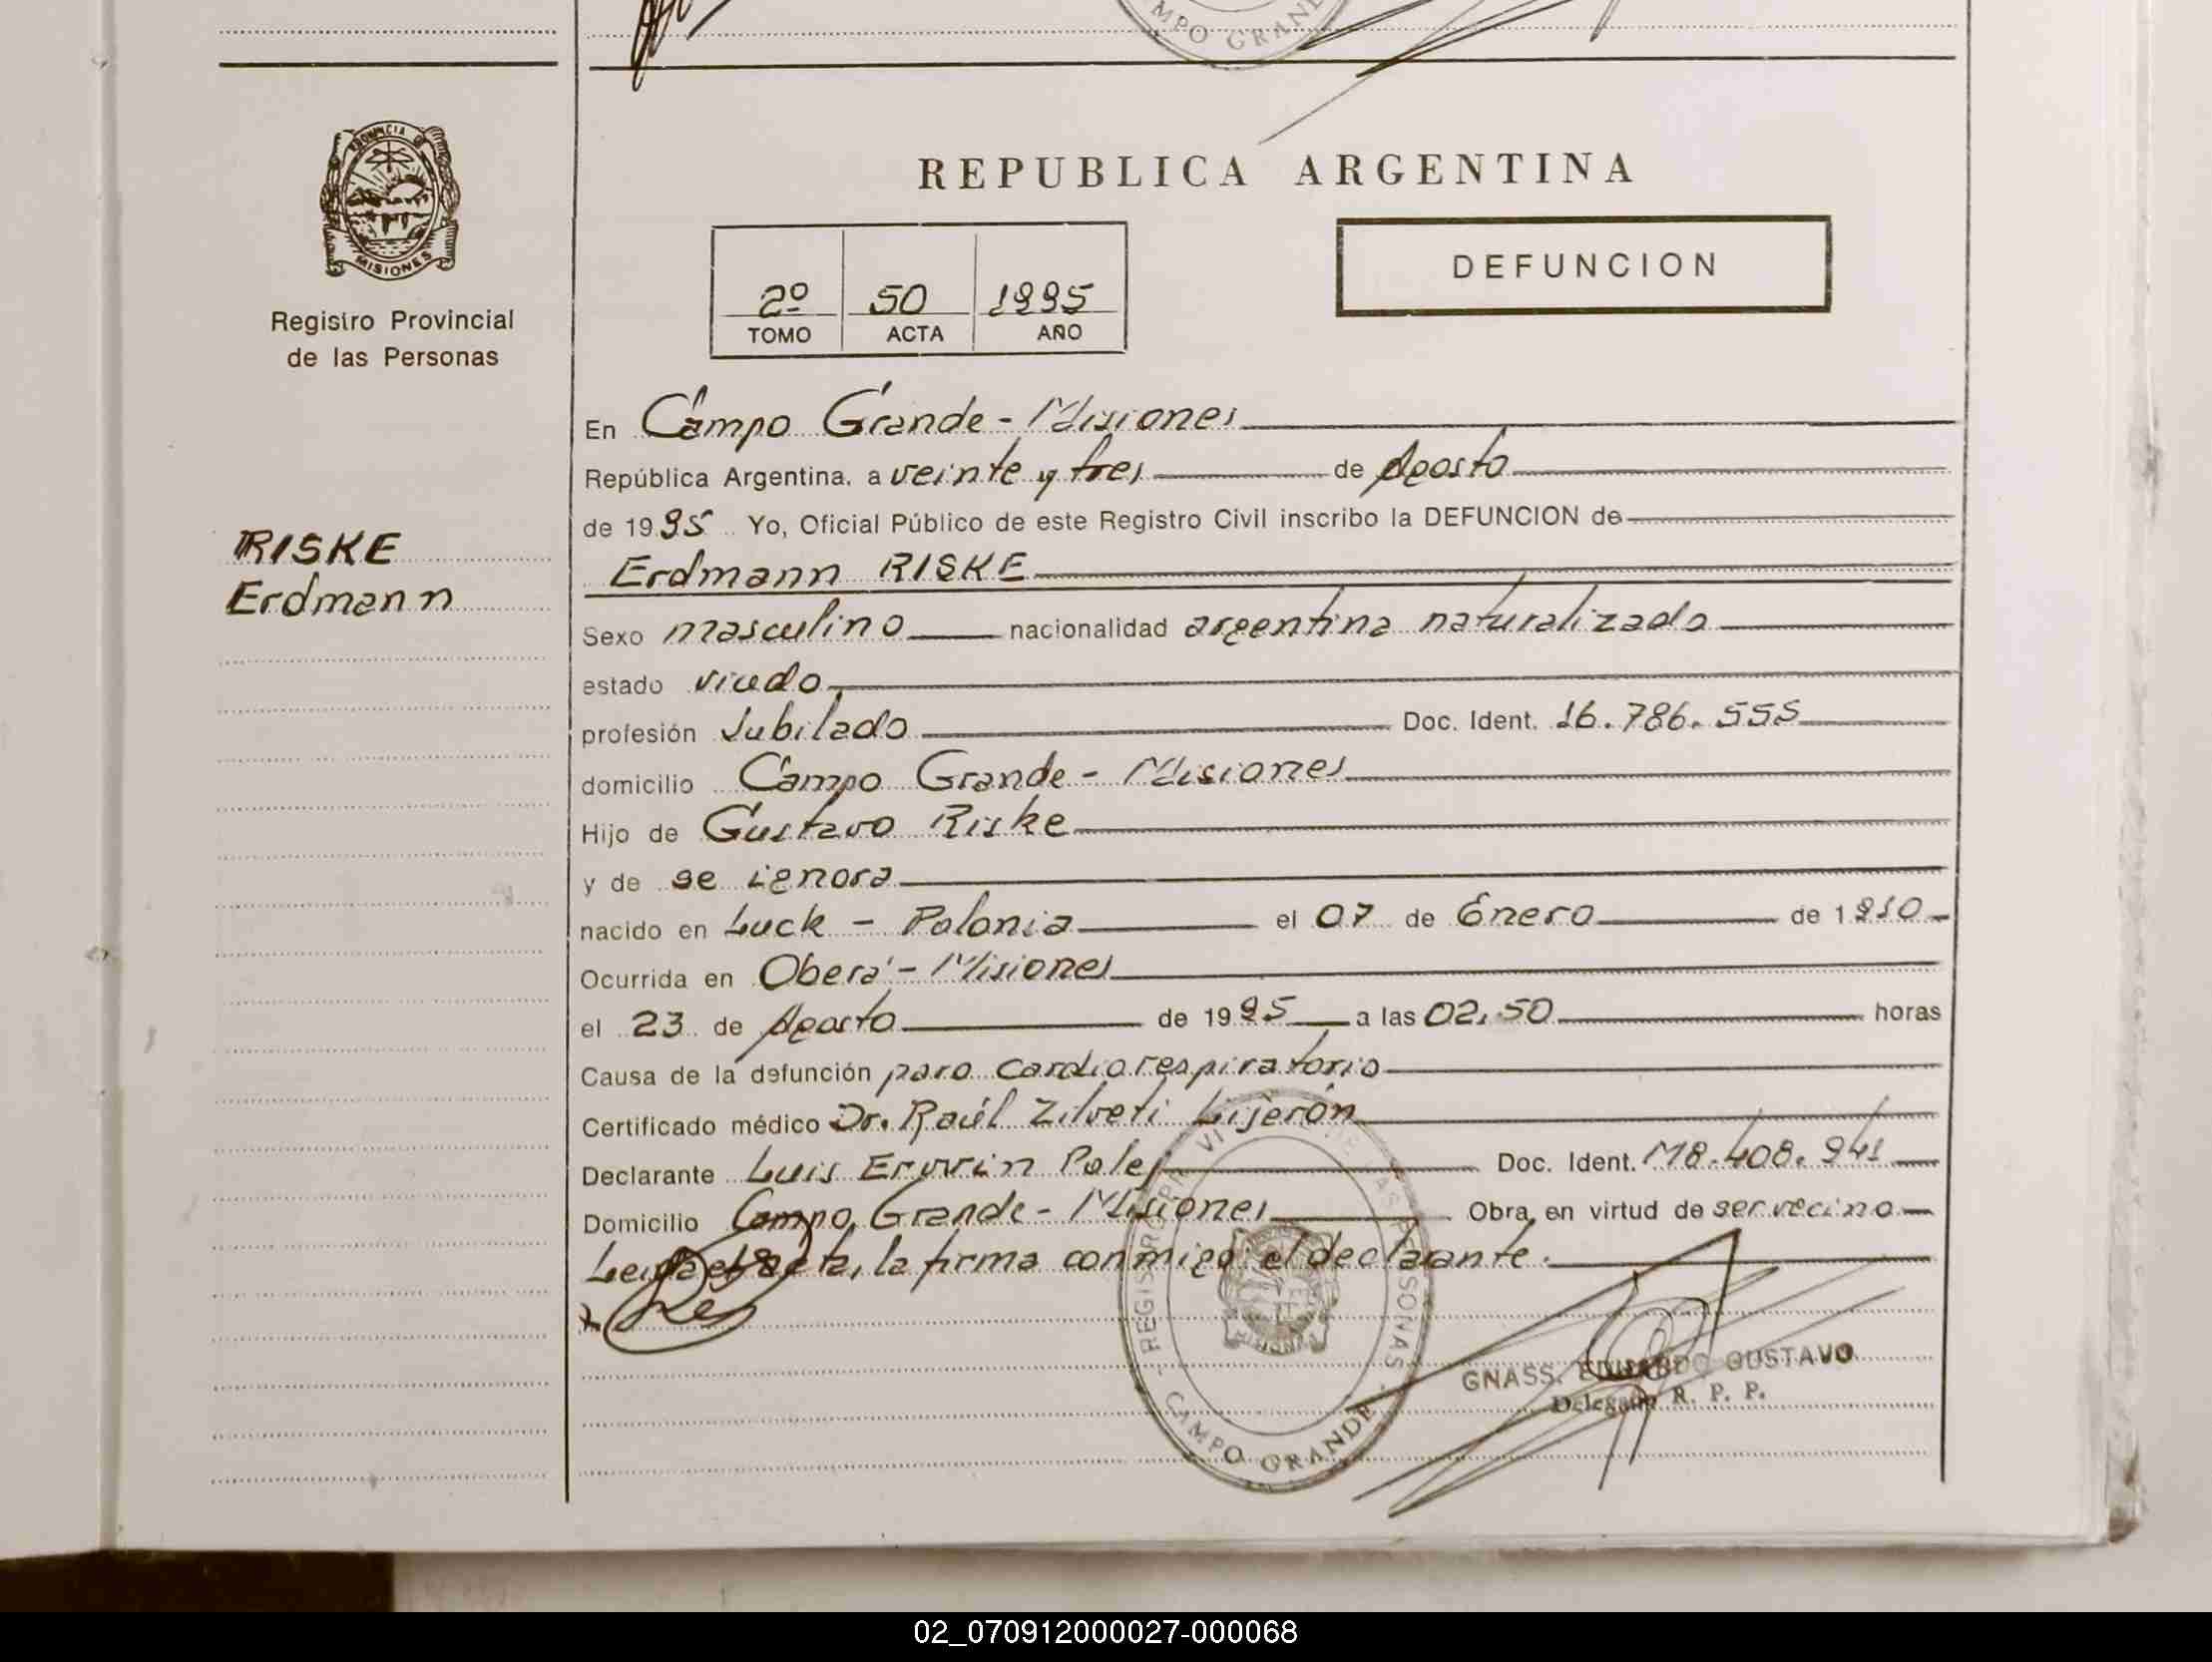 MPO GRAND
PROVINCIA DE
MISIONES
REPUBLICA ARGENTINA
DEFUNCION
2º 50 1995
TOMO ACTA AÑO
Registro Provincial
de las Personas
RISKE
Erdmann
En Campo Grande - Misiones
República Argentina, a veinte y tres de Agosto
de 1995 Yo, Oficial Público de este Registro Civil inscribo la DEFUNCION de
Erdmann RISKE
Sexo masculino nacionalidad argentina naturalizado
estado viudo
profesión Jubilado Doc. Ident. 16.786.555
domicilio Campo Grande - Misiones
Hijo de Gustavo Riske
y de se ignora
nacido en Luck - Polonia el 07 de Enero de 1910
Ocurrida en Oberá - Misiones
el 23 de Agosto de 1995 a las 02,50 horas
Causa de la defunción paro cardiorespiratorio
Certificado médico Dr. Raúl Zilveti Lijerón
Declarante Luis Erwin Doc. Ident. M8.408.941
Domicilio Campo Grande - Misiones Obra en virtud de ser vecino
Leida el acta, la firma conmigo el declarante.
GNASS. EDUARDO GUSTAVO
Delegado R. P. P.
CAMPO GRANDE
02_070912000027-000068